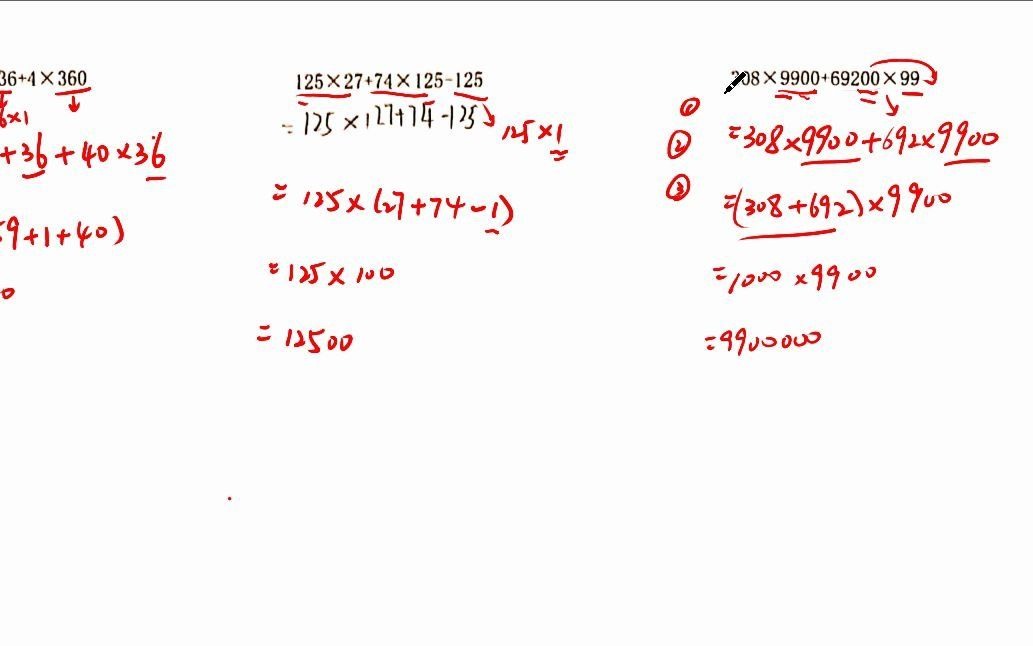 36+4×360
6×1
+36+40×36
59+1+40)
0
125×27+74×125-125
=125×127+74-125
125×1
=125×(27+74-1)
=125×100
=12500
308×9900+69200×99
①
② =308×9900+692×9900
③ =(308+692)×9900
=1000×9900
=9900000